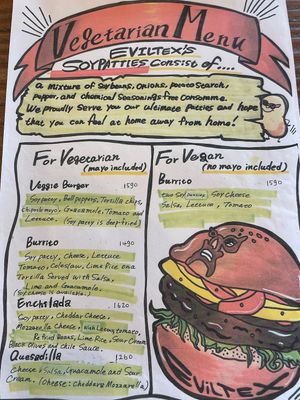 Vegetarian Menu
EVILTEX'S
SOYPATTIES CONSIST OF....
A mixture of Soybeans, onions, potato starch,
pepper, and chemical seasonings free consomme.
We proudly serve you our ultimate patties and hope
that you can feel at home away from home!
For Vegetarian
(mayo included)
Veggie Burger 1590
Soy patty, Bell peppers, Tortilla chips,
chipotle mayo, Guacamole, Tomato and
Lettuce. (Soy patty is deep-fried)
Burrito 1490
Soy patty, cheese, Lettuce
Tomato, Coleslaw, Lime Rice on a
Tortilla Served with Salsa,
Lime and Guacamole.
Enchilada 1620
Soy patty, Cheddar Cheese,
Mozzarella Cheese, with Lettuce, tomato,
Refried Beans, Lime Rice, Sour Cream,
Black Olives and Chile Sauce.
Quesadilla 1260
Cheese, Salsa, Guacamole and Sour
Cream. (Cheese: Cheddar & Mozzarella)
For Vegan
(no mayo included)
Burrito 1590
Soy Cheese
Salsa, Lettuce, Tomato
EVILTEX